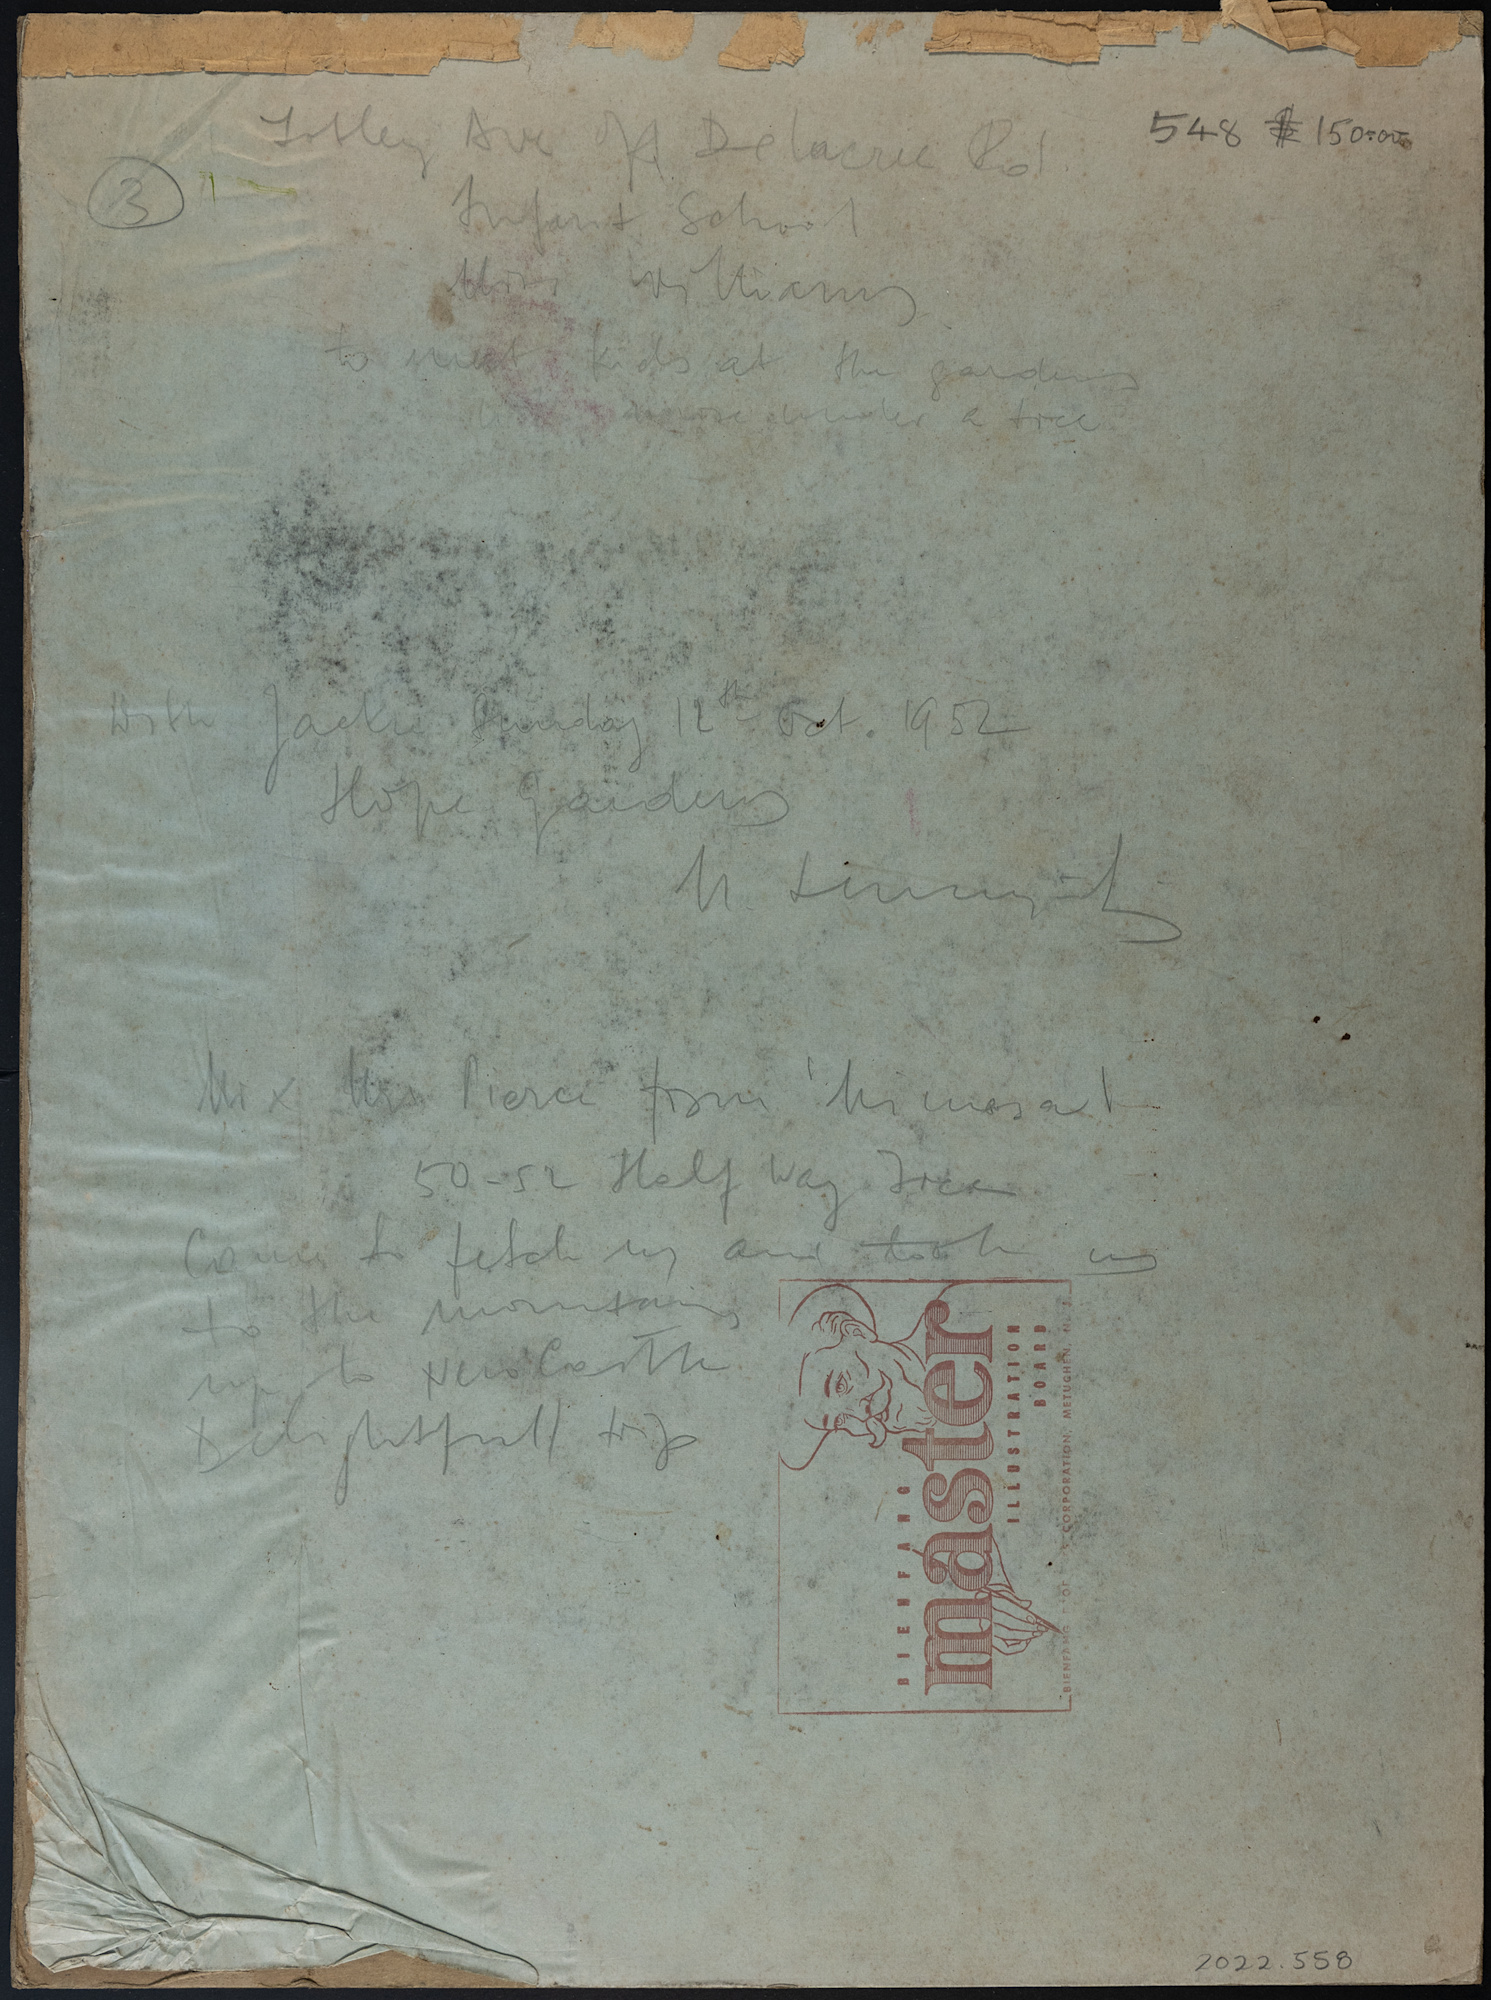 548 $ 150.00
Ave Off Delacree Rd.
3
Infant School
Miss Williams
to meet kids at the gardens
under a tree
With Jackie Sunday 12th Oct. 1952
Hope Gardens
Mr x Mrs Pierce from 'Mimosa'
50-52 Half Way Tree
Came to fetch us and took us
to the mountains
up to NewCastle
Delightfull trip
BIENFANG
master
ILLUSTRATION
BOARD
BIENFANG CORPORATION, METUCHEN, N. J.
2022.558